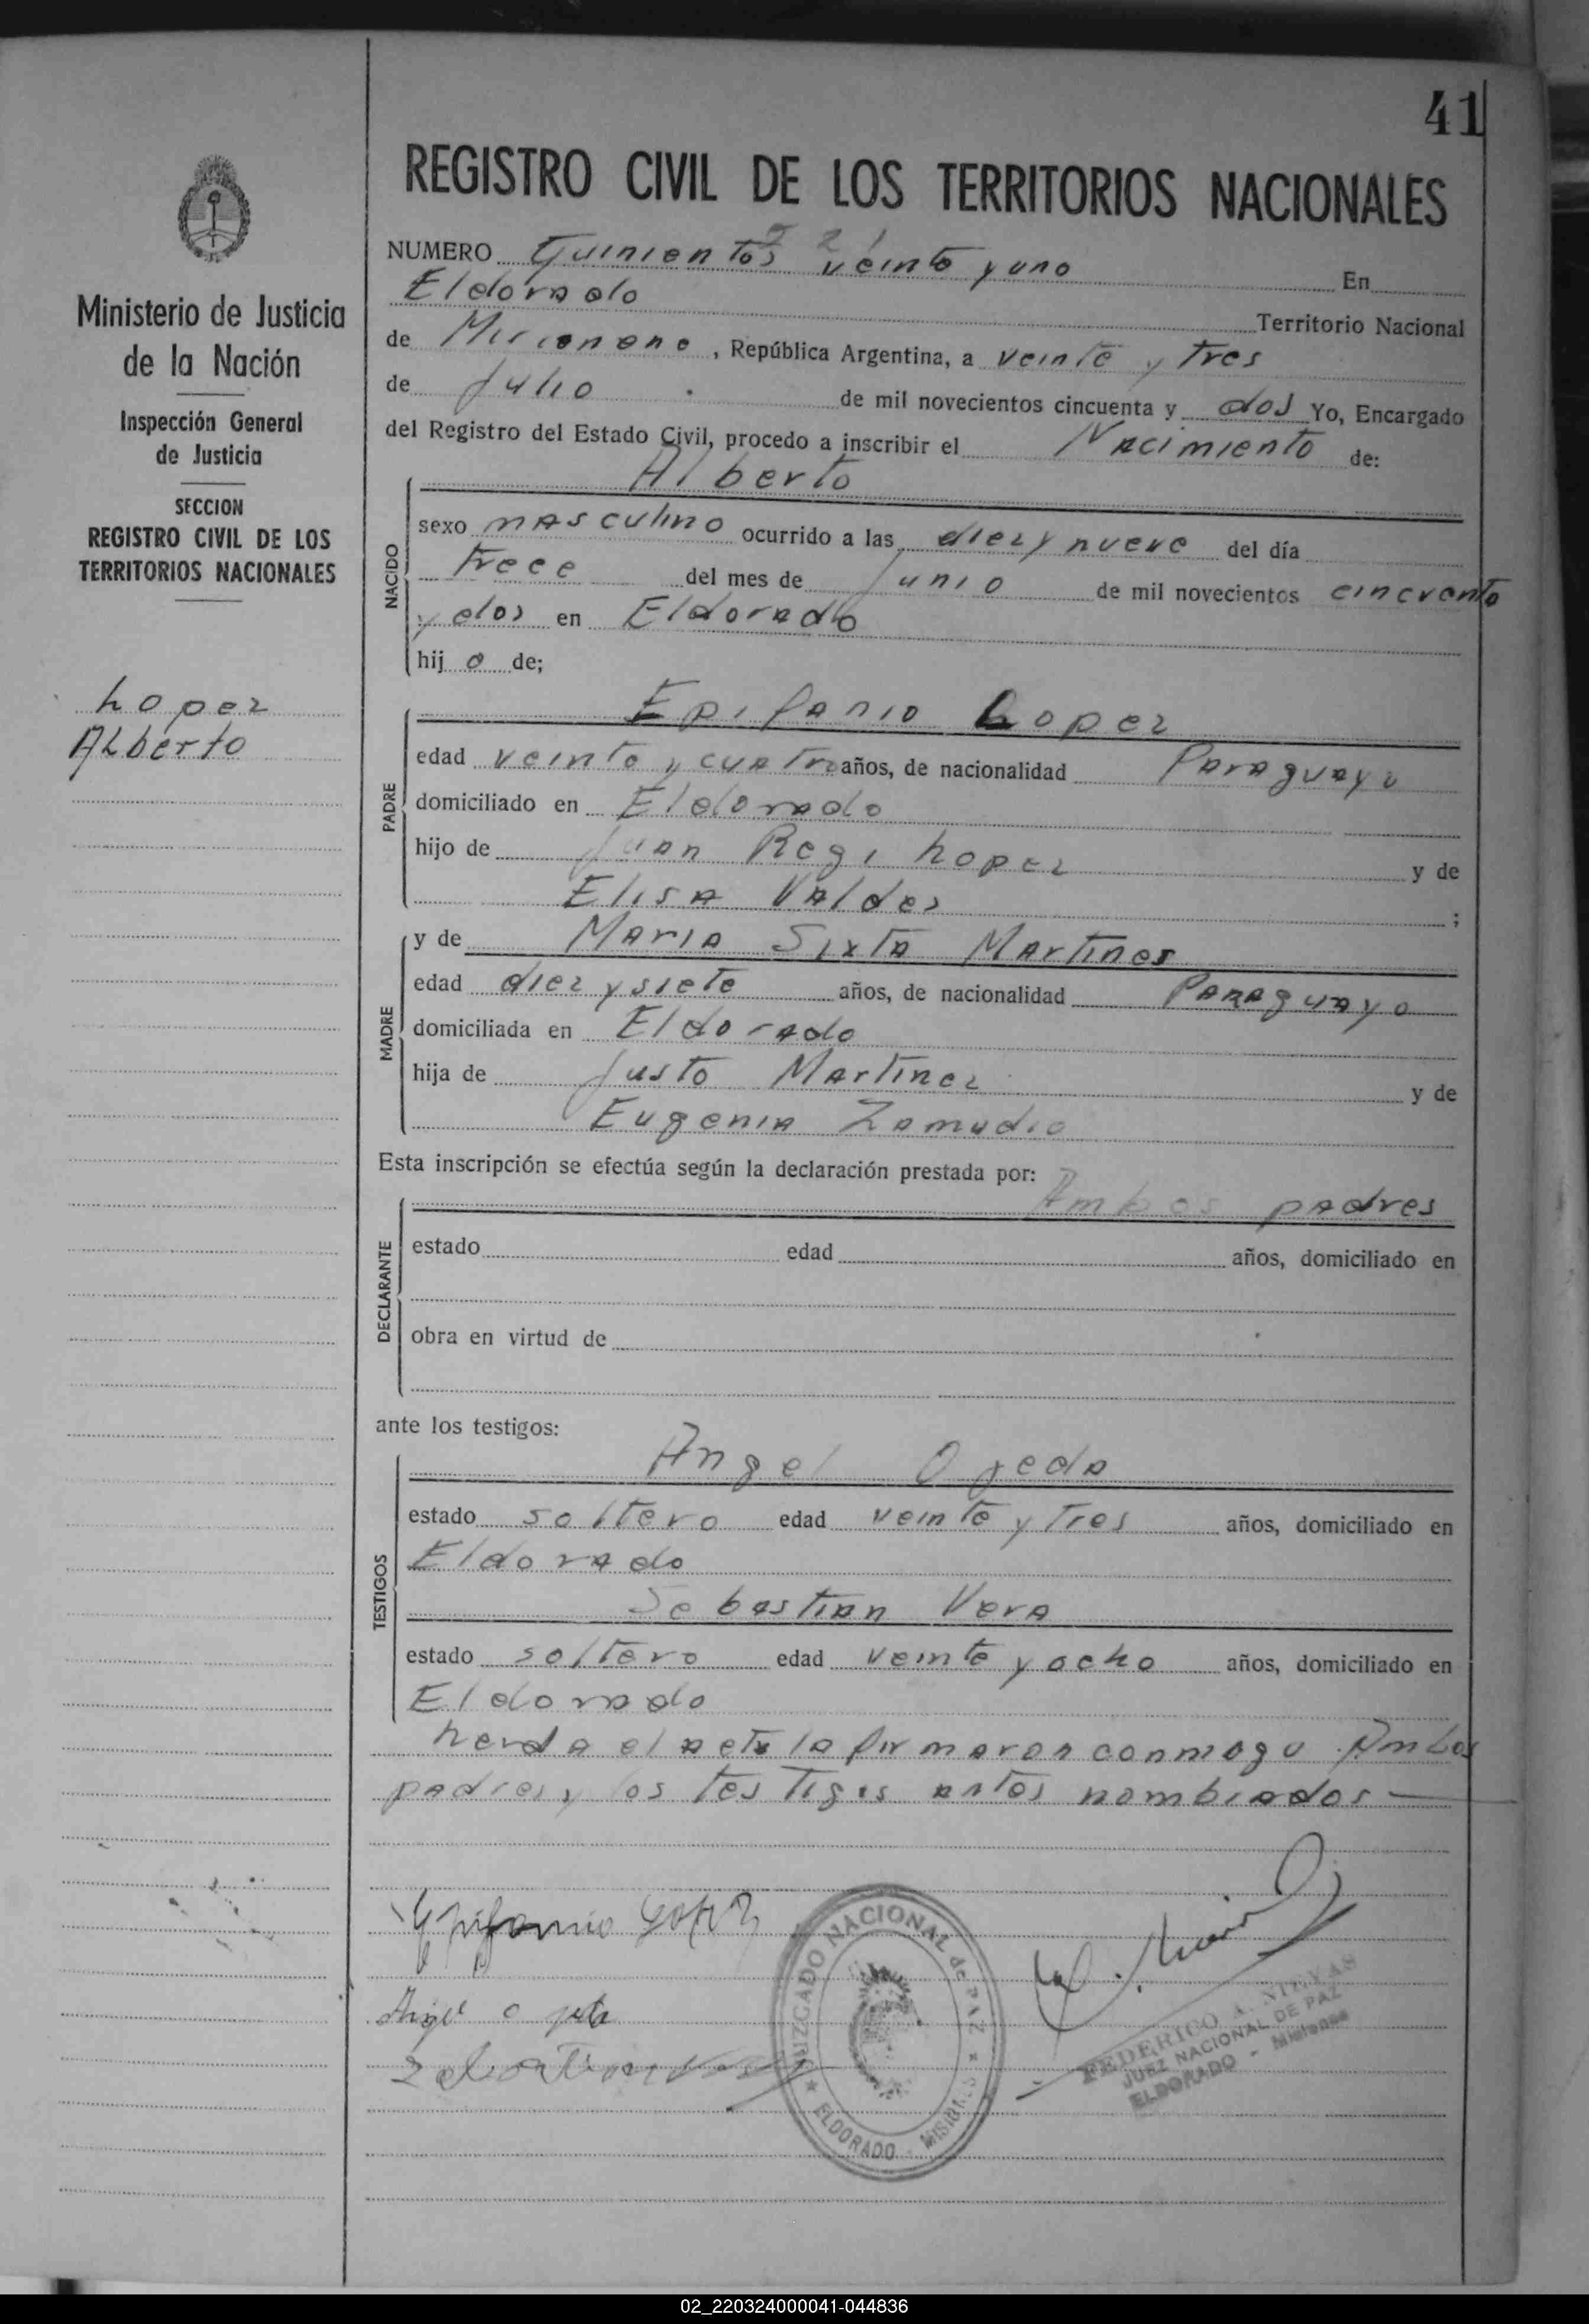 41
REGISTRO CIVIL DE LOS TERRITORIOS NACIONALES
Ministerio de Justicia
de la Nación
Inspección General
de Justicia
SECCION
REGISTRO CIVIL DE LOS
TERRITORIOS NACIONALES
Lopez
Alberto
5 2 1
NUMERO Quinientos veinte y uno En
Eldorado Territorio Nacional
de Misiones, República Argentina, a veinte y tres
de Julio de mil novecientos cincuenta y dos Yo, Encargado
del Registro del Estado Civil, procedo a inscribir el Nacimiento de:
NACIDO
Alberto
sexo masculino ocurrido a las diez y nueve del día
trece del mes de Junio de mil novecientos cincuenta
y dos en Eldorado
hijo de;
PADRE
Epifanio Lopez
edad veinte y cuatro años, de nacionalidad Paraguayo
domiciliado en Eldorado
hijo de Juan Regi Lopez y de
Elisa Valdes ;
MADRE
y de Maria Sixta Martines
edad diez y siete años, de nacionalidad Paraguayo
domiciliada en Eldorado
hija de Justo Martinez y de
Eugenia Zamudio
Esta inscripción se efectúa según la declaración prestada por:
DECLARANTE
Ambos padres
estado edad años, domiciliado en
obra en virtud de
ante los testigos:
TESTIGOS
Angel Ojeda
estado soltero edad veinte y tres años, domiciliado en
Eldorado
Sebastian Vera
estado soltero edad veinte y ocho años, domiciliado en
Eldorado
el acta la firmaron conmigo Ambos
padres y los testigos antes nombrados
Epifanio Lopez
JUZGADO NACIONAL de PAZ
ELDORADO - MISIONES
FEDERICO A.
JUEZ NACIONAL DE PAZ
ELDORADO - Misiones
02_220324000041-044836